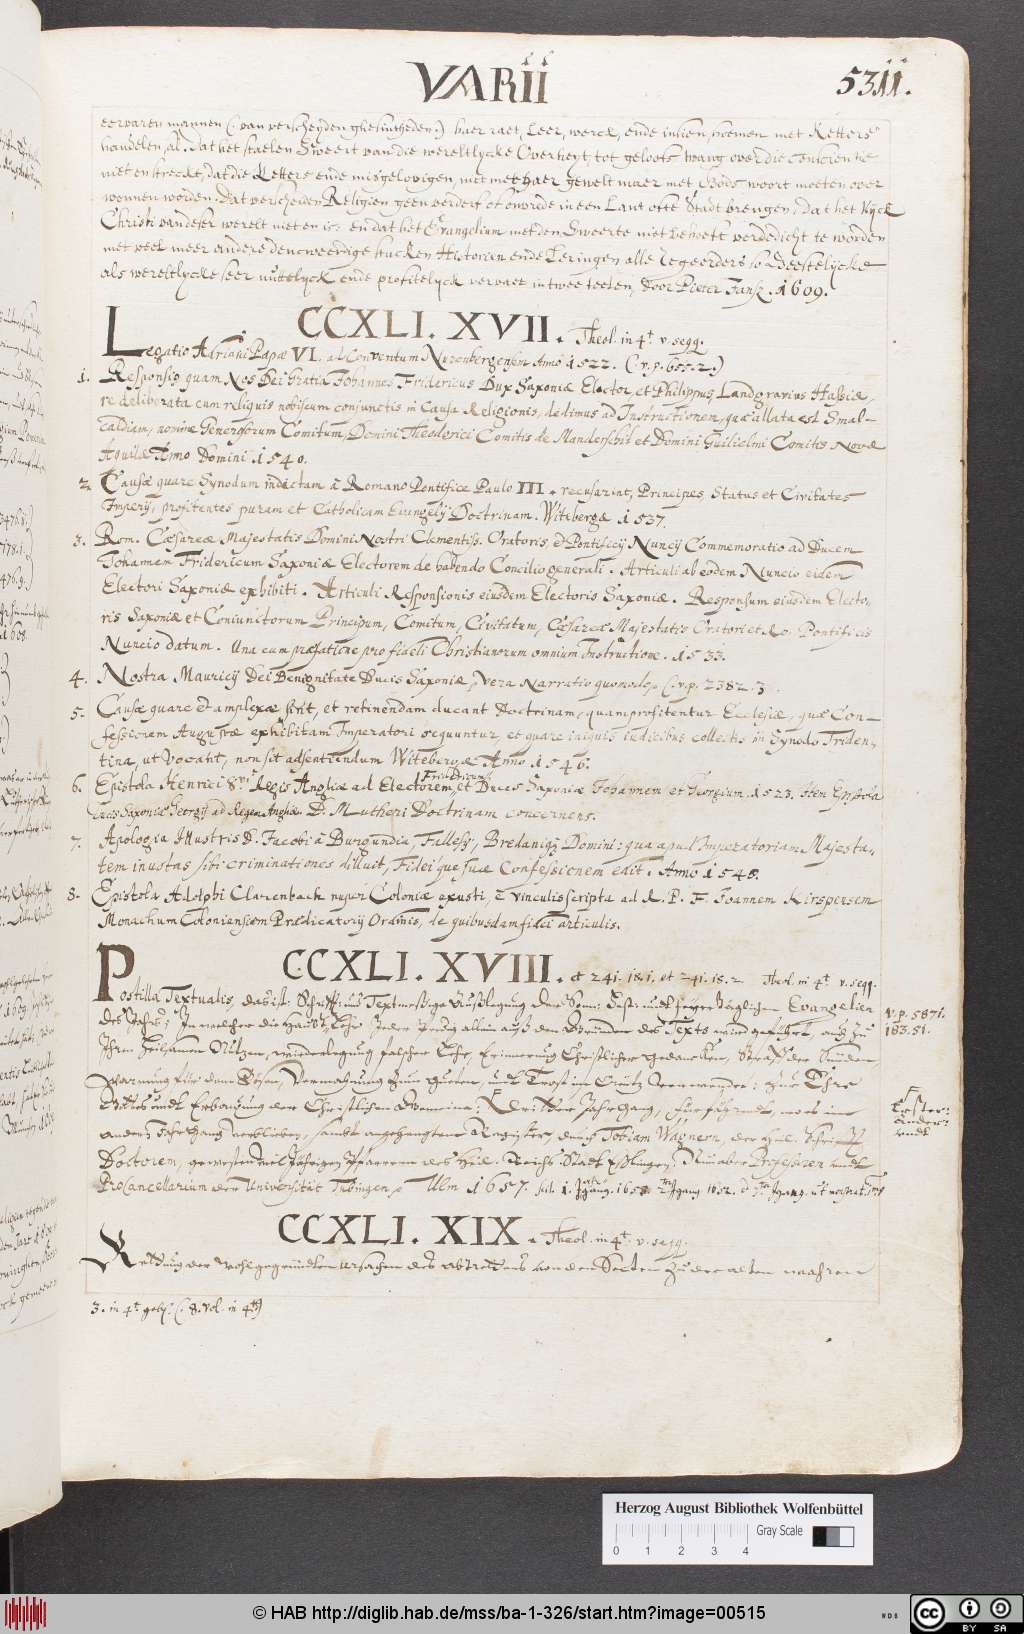 VARII
5311.
eervaren mannen (van verscheyden ghesintheden) haer raet, Leer, werck, ende insien, hoemen met Ketters
handelen, al. Dat het staelen Sweert van die wereltlycke Overheyt, tot geloofs dwang over die conscientie
niet en strecke, dat die Kettere ende misgelovigen, niet met haer gewelt maer met Gods woort moeten over
wonnen worden. Dat verscheiden Religien geen verderf of onvrede in een Lant ofte Stadt brengen, dat het Rijck
Christi van deser werelt niet en is: en dat het Evangelium met den Sweerte niet behoeft verdedicht te worden
met veel meer andere denckweerdige stucken Historien ende Leringen alle Regeerders so Gheestelijcke
als wereltlycke seer nuttelyck ende profitelyck vervaet in twee deelen, door Pieter Jansz. 1609.
CCXLI. XVII. Theol. in 4t. v. seqq.
Legatio Adriani Papæ VI. ad Conventum Nurenbergensem Anno 1522. (v. p. 655.2.)
1. Responsio quam Nos Dei Gratia Johannes Fridericus Dux Saxoniæ Elector, et Philippus Landgravius Hassiæ,
re deliberata cum reliquis nobiscum conjunctis in Causa Religionis, dedimus ad Instructionem, quæ allata est Smal-
caldiam, nomine Generosorum Comitum, Domini Theoderici Comitis de Manderschid et Domini Guilielmi Comitis Novæ
Aquilæ Anno Domini 1540.
2. Causæ quare Synodum indictam à Romano Pontifice Paulo III. recusarint, Principes, Status et Civitates
Imperij, profitentes puram et Catholicam Euangelij Doctrinam. Witebergæ 1537.
3. Rom. Cæsareæ Majestatis Domini Nostri Clementiss. Oratoris, et Pontificij Nuncij Commemoratio ad Ducem
Johannem Fridericum Saxoniæ Electorem de habendo Concilio generali. Articuli ab eodem Nuncio eidem
Electori Saxoniæ exhibiti. Articuli Responsionis eiusdem Electoris Saxoniæ. Responsum eiusdem Electo-
ris Saxoniæ et Coniunctorum Principum, Comitum, Civitatum, Cæsareæ Majestatis Oratori et Ro. Pontificis
Nuncio datum. Una cum præfatione pro fideli Christianorum omnium Instructione. 1533.
4. Nostra Mauricij Dei Benignitate Ducis Saxoniæ, vera Narratio quomodo, (v. p. 2382.3.
5. Causæ quare et amplexæ sint, et retinendam ducant Doctrinam, quam profitentur Ecclesiæ, quæ Con-
fessionem Augustæ exhibitam Imperatori sequuntur, et quare iniquis iudicibus collectis in Synodo Triden-
tina, ut vocant, non sit adsentiendum Witebergæ Anno 1546.
6. Epistola Henrici 8vi Regis Angliæ ad Electorem Fridericum, et Duces Saxoniæ Johannem et Georgium. 1523. Item Epistola
Ducis Saxoniæ Georgij ad Regem Angliæ D. M. Lutheri Doctrinam concernens.
7. Apologia Illustris D. Jacobi à Burgundia, Fallesij, Bredanique Domini: qua apud Imperatoriam Majesta-
tem inustas sibi criminationes diluit, Fideique suæ Confessionem edit. Anno 1548.
8. Epistola Adolphi Clarenbach nuper Coloniæ exusti, è vinculis scripta ad R. P. F. Joannem Kirspensem
Monachum Coloniensem Prædicatorij Ordinis, de quibusdam fidei articulis.
CCXLI. XVIII. et 241. 18. 1. et 241. 18. 2 Theol. in 4t. v. seqq.
Postilla Textualis, das ist: Schrifft- und Textmessige Außlegung der Sonn- Fest- und Evangelien
v. p. 5871.
183.51.
des Jahrs: In welcher die Haubt Lehr jeder Predig allein auß dem Grunde des Texts wird geführt, auch zu
Ihren heilsamen Nutzen, wiederlegung falscher Lehr, Erinnerung Christlicher Gedancken, Straff der Sünden,
Warnung für dem Bösen, Vermahnung zum Guten, und Trost im Creutz verwendet: Zur Ehre
Gottes und Erbawung der Christlichen Gemeine: Erster Jahrgang,
Erster:
Ander:
undt
andern Jahrgang verblieben, sambt angehengtem Register, durch Tobiam Wagnern, der Heil. Schrifft
Doctorem, gewesenen Pfarrern des Heil. Reichs Statt Eßlingen, Nun aber Professoren undt
ProCancellarium der Universität Tübingen, Ulm 1657.
CCXLI. XIX. Theol. in 4t. v. seqq.
Rettung der Wohlgegründten ursachen des abtrettens von den Secten zu der alten waahren
3. in 4t. (8. vol. in 4to)
Herzog August Bibliothek Wolfenbüttel
Gray Scale
0 1 2 3 4
© HAB http://diglib.hab.de/mss/ba-1-326/start.htm?image=00515
WDB
cc BY SA